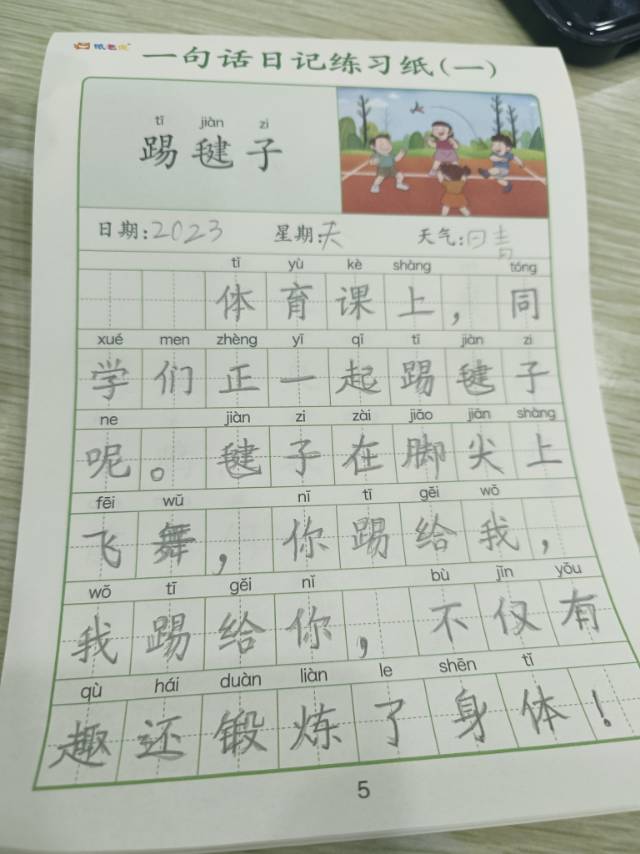 纸老虎
一句话日记练习纸(一)
tī jiàn zi
踢毽子
日期:2023 星期:天 天气:日青
tǐ yù kè shàng tóng
体育课上,同
xué men zhèng yī qǐ tī jiàn zi
学们正一起踢毽子
ne jiàn zi zài jiǎo jiān shàng
呢。毽子在脚尖上
fēi wǔ nǐ tī gěi wǒ
飞舞,你踢给我,
wǒ tī gěi nǐ bù jǐn yǒu
我踢给你,不仅有
qù hái duàn liàn le shēn tǐ
趣还锻炼了身体!
5